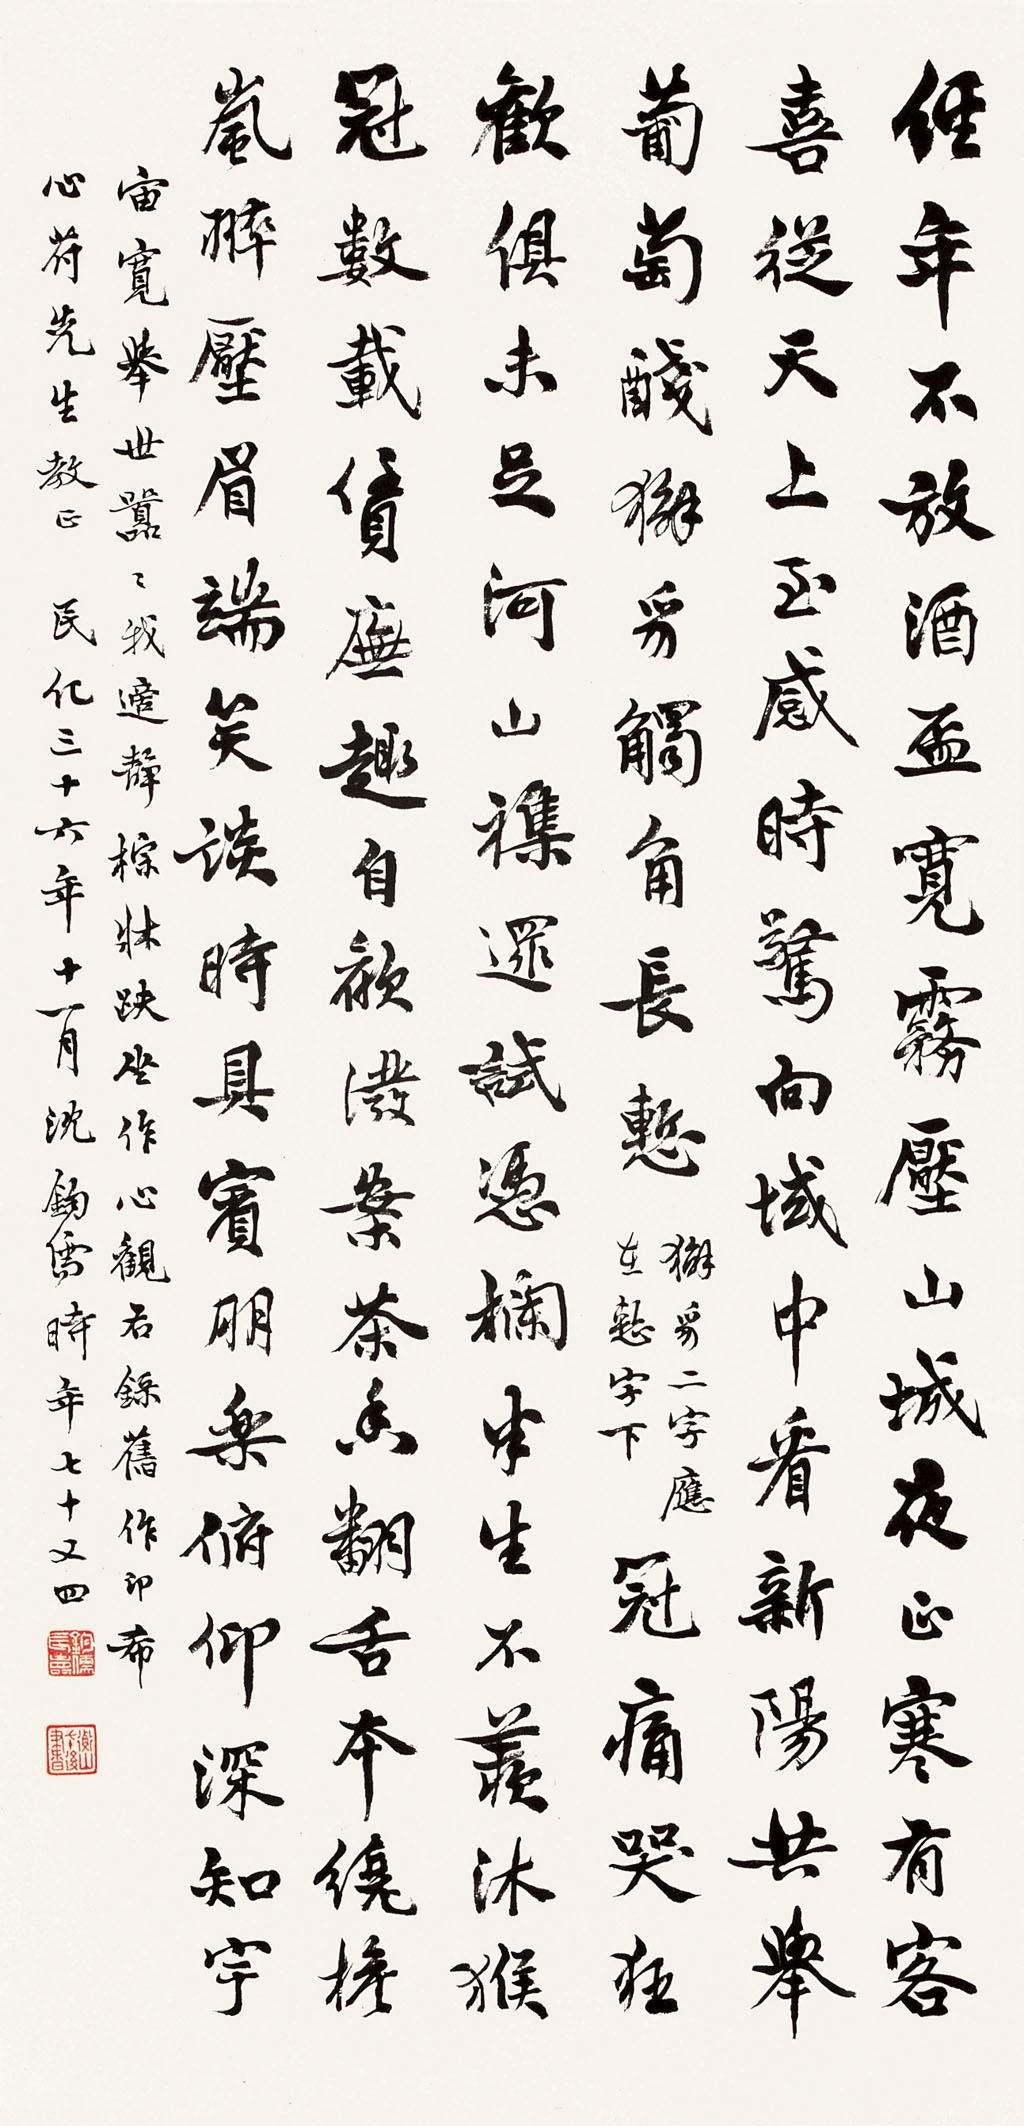 經年不放酒盃寬霧壓山城夜正寒有客
喜從天上至感時驚向域中看新陽共舉
葡萄醆獬豸觸角長慙
獬豸二字應
在慙字下
冠痛哭狂
歡俱未足河山襍遝試憑欄半生不羨沐猴
冠數載賃廡趣自欣潑案茶香翻舌本繞檐
嵐翠壓眉端笑談時具賓朋樂俯仰深知宇
宙寬舉世囂〻我適靜棕牀趺坐作心觀右錄舊作即希
心符先生教正 民化三十六年十一月沈鈞儒時年七十又四